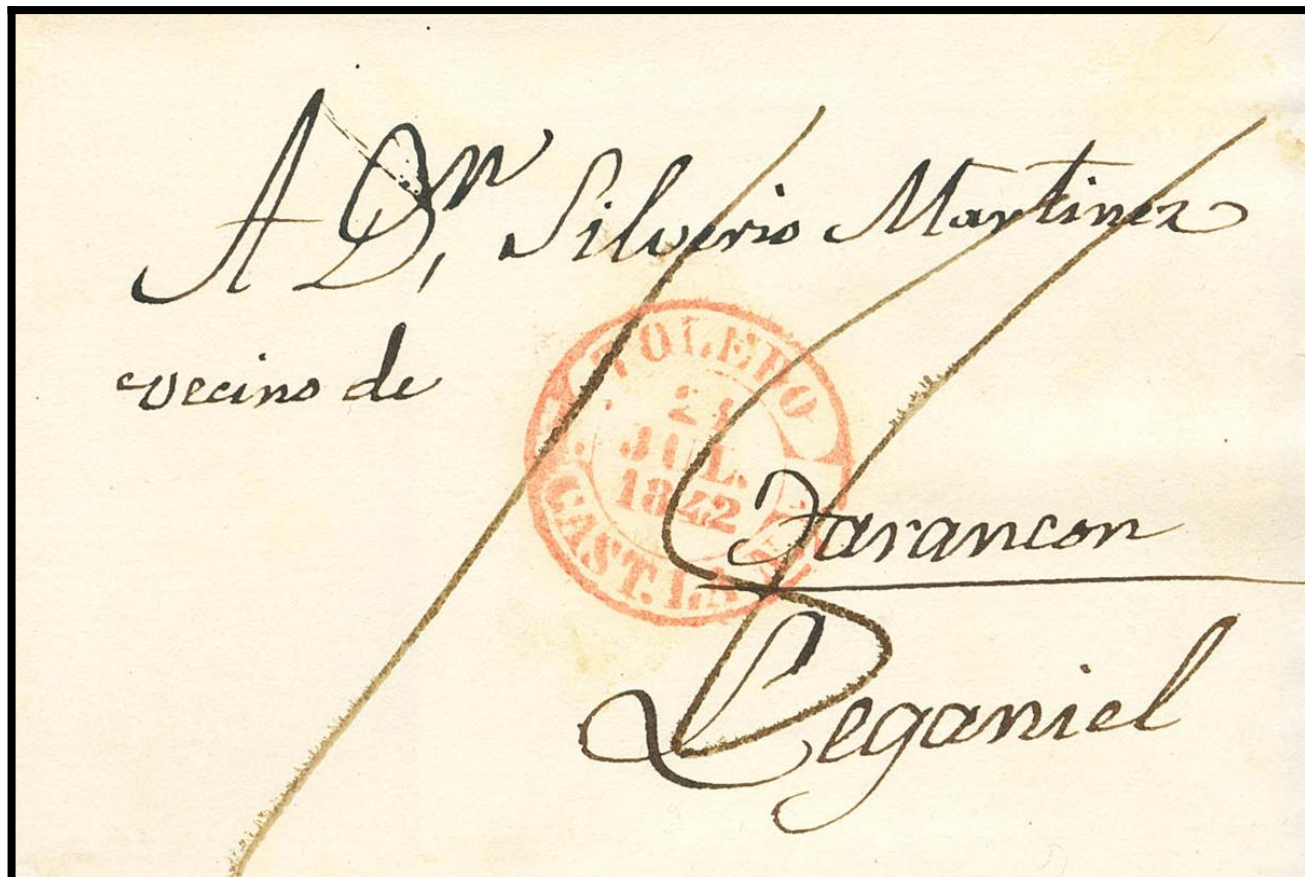 A Dn. Silverio Martinez
vecino de
TOLEDO
JUL.
1842
CAST. LA N.
Tarancon
Leganiel